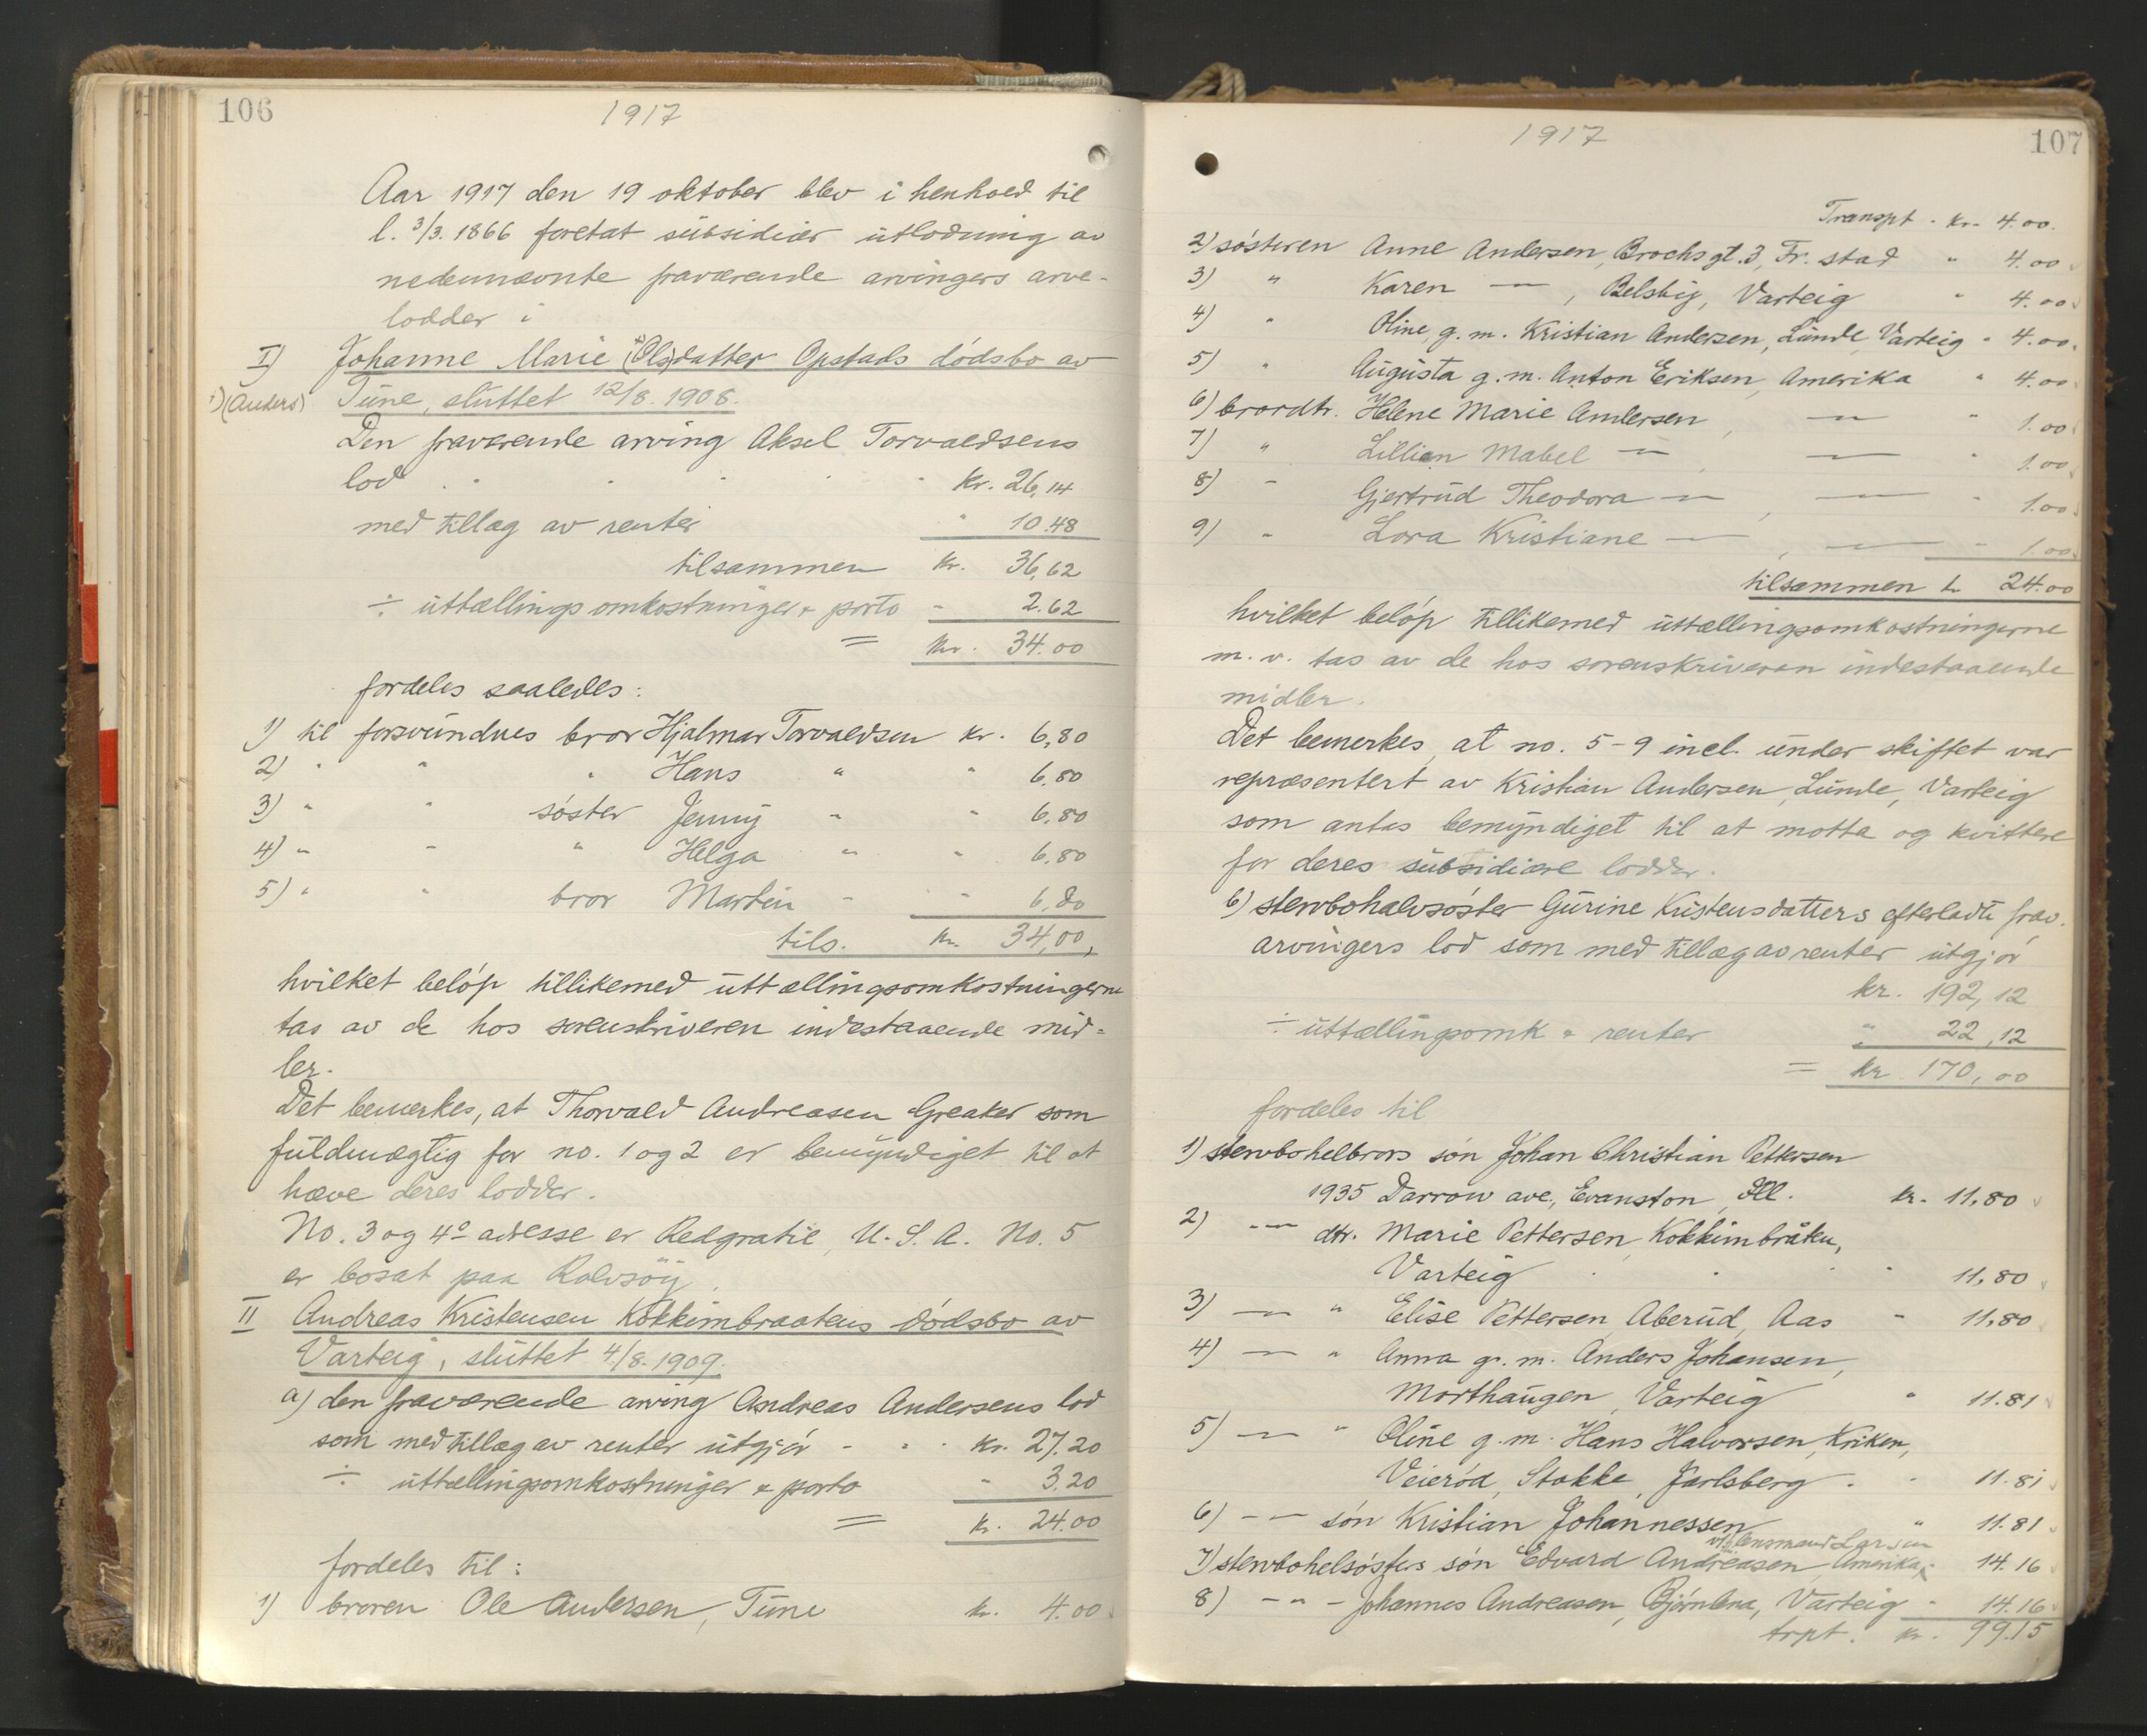 106
1917
Aar 1917 den 19 oktober blev i henhold til
l. 3/3. 1866 foretat subsidiær utlodning av
nedennævnte fraværende arvingers arve-
lodder i
I) Johanne Marie (Ols)datter Opstads dødsbo av
1) (Anders) Tune, sluttet 12/8. 1908.
Den fraværende arving Aksel Torvaldsens
lod . . . . . kr. 26,14
med tillæg av renter " 10.48
tilsammen kr. 36,62
÷ uttællingsomkostninger & porto - 2.62
= kr. 34.00
fordeles saaledes:
1) til forsvundnes bror Hjalmar Torvaldsen kr. 6,80
2) " " " Hans " " 6.80
3) " " søster Jenny " " 6,80
4) " " " Helga " " 6,80
5) " " bror Martin " " 6,80
tils. kr. 34,00,
hvilket beløp tillikemed uttællingsomkostningerne
tas av de hos sorenskriveren indestaaende mid-
ler.
Det bemerkes, at Thorvald Andreasen Greaker som
fuldmægtig for no. 1 og 2 er bemyndiget til at
hæve deres lodder.
No. 3 og 4s adesse er Redgratie, U.S.A. No. 5
er bosat paa Rolvsøy.
II Andreas Kristensen Kokkimbraatens dødsbo av
Varteig, sluttet 4/8. 1909.
a) den fraværende arving Andreas Andersens lod
som med tillæg av renter utgjør - . . kr. 27.20
÷ uttællingsomkostninger & porto " 3.20
= kr. 24.00
fordeles til:
1) broren Ole Andersen, Tune kr. 4.00
1917
107
Transpt. kr. 4.00.
2) søsteren Anne Andersen, Brochsgt. 3, Fr. stad " 4.00
3) " Karen — , Belsby, Varteig " 4.00
4) " Oline, g. m. Kristian Andersen, Lunde, Varteig " 4.00.
5) " Augusta g. m. Anton Eriksen, Amerika " 4.00
6) brordtr. Helene Marie Andersen , — " 1.00
7) " Lillian Mabel — , — " 1.00
8) " Gjertrud Theodora — , — " 1.00
9) " Lora Kristiane — , — " 1.00
tilsammen kr 24.00
hvilket beløp tillikemed uttællingsomkostningerne
m. v. tas av de hos sorenskriveren indestaaende
midler.
Det bemerkes, at no. 5-9 incl. under skiftet var
repræsentert av Kristian Andersen, Lunde, Varteig
som antas bemyndiget til at motta og kvittere
for deres subsidiære lodder.
b) stervbohalvsøster Gurine Kristensdatters efterladte frav.
arvingers lod som med tillæg av renter utgjør
kr. 192,12
÷ uttællingsomk & renter " 22,12
= kr 170,00
fordeles til
1) stervbohelbrors søn Johan Christian Pettersen
1935 Darrow ave., Evanston, Ill. kr. 11,80
2) — dtr. Marie Pettersen, Kokkimbråten,
Varteig . . . " 11,80
3) — " Elise Pettersen, Aberud, Aas " 11,80
4) — " Anna g. m. Anders Johansen,
Morthaugen, Varteig " 11.81
5) — " Oline g. m. Hans Halvorsen, Kriken,
Veierød, Stokke, Jarlsberg . " 11.81
6) — søn Kristian Johannessen " 11.81
v/ lensmand Larsen
7) stervbohelsøsters søn Edvard Andreasen, Amerika, 14.16
8) — " — Johannes Andreasen, Bjørnlena, Varteig " 14.16
trpt. kr. 99.15